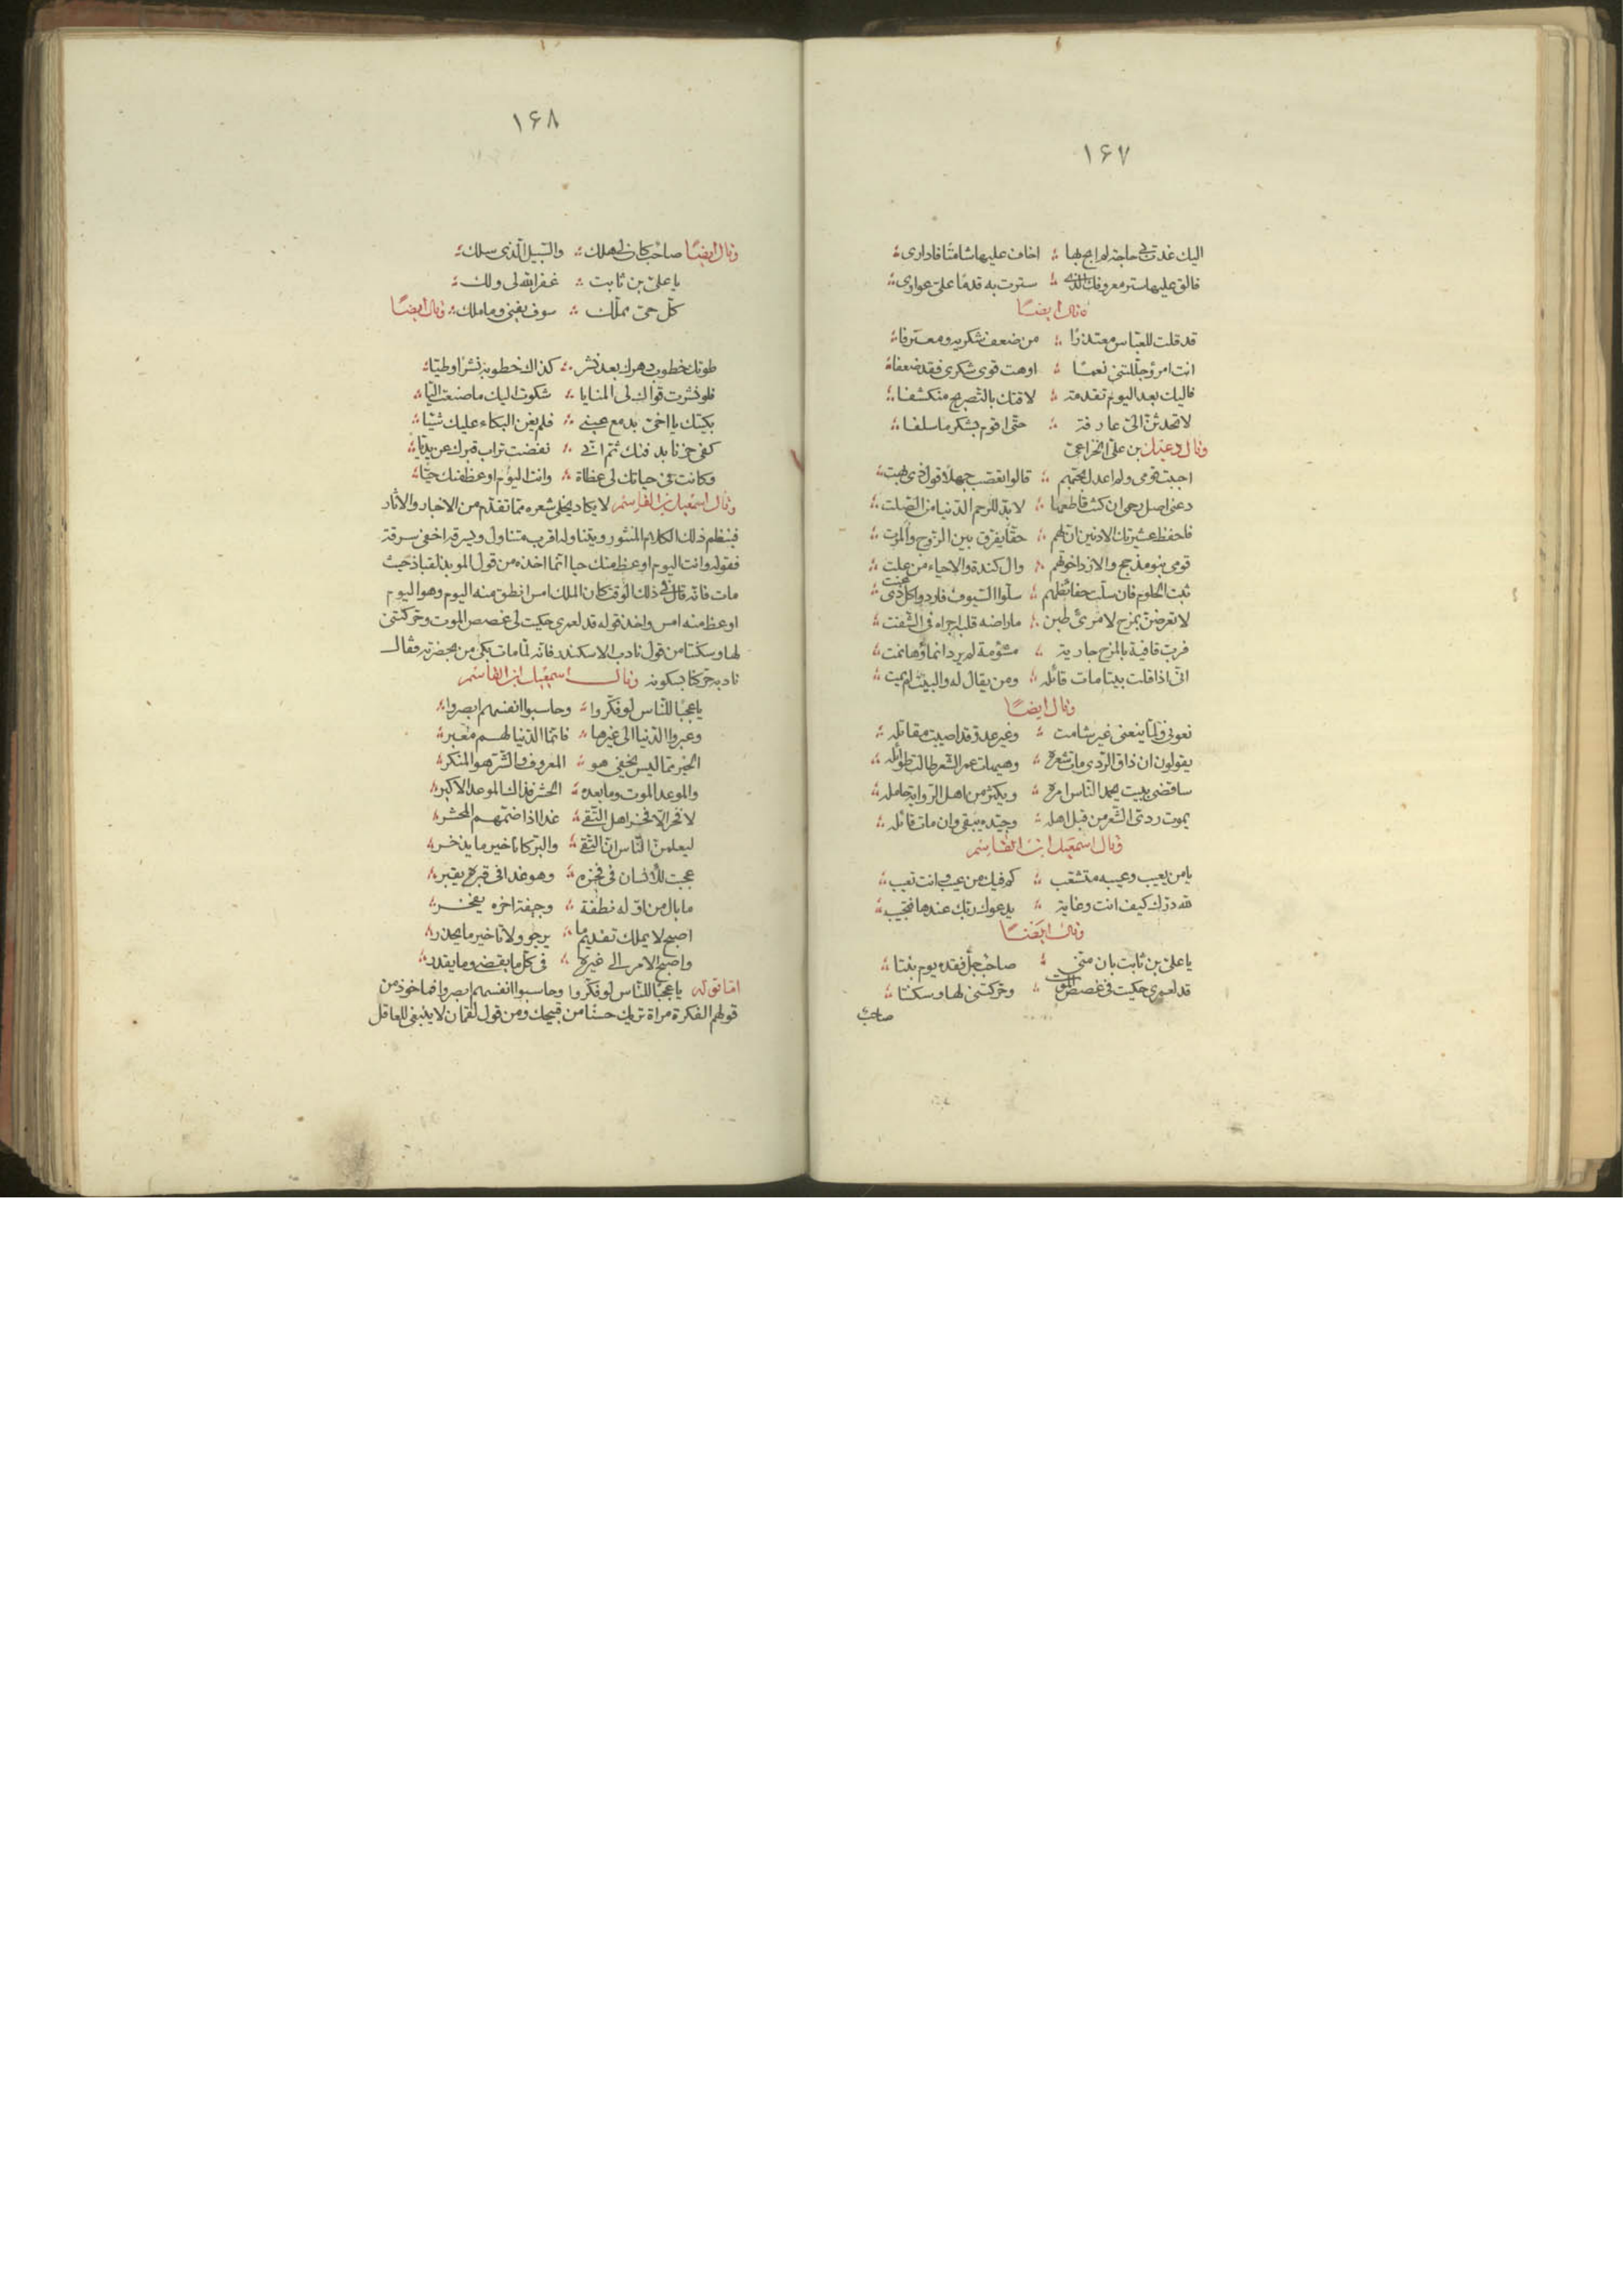 ١٦٧
اليك غدت بي حاجة لم ابح بها ؞ اخاف عليها شامتا فادارى ؞
فالق عليها ستر معروفك الذى ؞ سترت به قدمًا علىّ عوارى ؞
وقال ايضًا
قد قلت للعباس معتذرًا ؞ من ضعف شكريه ومعترفا ؞
انت امرؤ جللتنى نعمًا ؞ اوهت قوى شكرى فقد ضعفا ؞
فاليك بعد اليوم تقدمة ؞ لاقتك بالتصريح منكشفا ؞
لا تحدثن الىّ عارفة ؞ حتى اقوم بشكر ما سلفا ؞
وقال دعبل بن على الخزاعى
احببت قومى ولم اعدل بحبهم ؞ قالوا تعصب جهلا قول ذى بهت ؞
دعنى اصل رحمى ان كنت قاطعها ؞ لا بد للرحم الدنيا من الصلت ؞
فاحفظ عشيرتك الادنين ان لهم ؞ حقا يفرق بين الزوج والمرت ؞
قومى بنو مذحج والازد اخوتهم ؞ وال كندة والاحياء من علت ؞
ثبت الحلوم فان سلت حفائظهم ؞ سلوا السيوف فاردوا كل ذى عنت ؞
لا تعرضن بمزح لامرئ طبن ؞ ما راضه قلبه اجراه فى الشفت ؞
فرب قافية بالمزح جارية ؞ مشؤمة لم يرد انماؤها نمت ؞
انى اذا قلت بيتا مات قائله ؞ ومن يقال له والبيت لم يمت ؞
وقال ايضًا
نعونى ولما ينعنى غير شامت ؞ وغير عدو قد اصيبت مقاتله ؞
يقولون ان ذاق الردى مات شعره ؞ وهيهات عمر الشعر طالت طوائله ؞
ساقضى ببيت يحمد الناس امره ؞ ويكثر من اهل الرواية حامله ؞
يموت ردى الشعر من قبل اهله ؞ وجيده يبقى وان مات قائله ؞
وقال اسمعيل ابن القاسم
يا من يعيب وعيبه متشعب ؞ كم فيك من عيب وانت تعيب ؞
لله درك كيف انت وغاية ؞ يدعوك ربك عندها فتجيب ؞
وقال ايضًا
يا على بن ثابت بان منى ؞ صاحب جل فقده يوم بنتا ؞
قد لعمرى حكيت فى غصص الموت ؞ وحركتنى لها وسكنتا ؞
صاحب
١٦٨
وقال ايضًا صاحب كان لى هلك ؞ والسبيل الذى سلك ؞
يا على بن ثابت ؞ غفر الله لى ولك ؞
كل حى مملك ؞ سوف يفنى وما ملك ؞ وقال ايضًا
طوتك خطوب دهرك بعد نشر ؞ كذاك خطوبه نشرا وطيا ؞
فلو نشرت قواك لى المنايا ؞ شكوت اليك ما صنعت اليا ؞
بكيتك يا اخى بدمع عينى ؞ فلم يغن البكاء عليك شيا ؞
كفى حزنا بدفنك ثم انى ؞ نفضت تراب قبرك عن يديا ؞
وكانت فى حياتك لى عظاة ؞ وانت اليوم اوعظ منك حيا ؞
وقال اسمعيل بن القاسم لا يكاد يخلى شعره مما تقدم من الاخبار والاثار
فينظم ذلك الكلام المنثور ويتناوله اقرب متناول ويسرقه اخفى سرقة
فقوله وانت اليوم اوعظ منك حيا انما اخذه من قول الموبذ لقباذ حيث
مات فانه قال فى ذلك الوقت كان الملك امس انطق منه اليوم وهو اليوم
اوعظ منه امس واخذ قوله قد لعمرى حكيت لى غصص الموت وحركتنى
لها وسكنتا من قول نادب الاسكندر فانه لما مات بكى من بحضرته فقال
نادبه حركنا بسكونه وقال اسمعيل ابن القاسم
يا عجبًا للناس لو فكروا ؞ وحاسبوا انفسهم ابصروا ؞
وعبروا الدنيا الى غيرها ؞ فانما الدنيا لهم معبر ؞
الخير مما ليس يخفى هو ؞ المعروف والشر هو المنكر ؞
والموعد الموت وما بعده ؞ الحشر فذاك الموعد الاكبر ؞
لا فخر الا فخر اهل التقى ؞ غدا اذا ضمهم المحشر ؞
ليعلمن الناس ان التقى ؞ والبر كانا خير ما يذخر ؞
عجبت للانسان فى فخره ؞ وهو غدا فى قبره يقبر ؞
ما بال من اوله نطفة ؞ وجيفة اخره يفخر ؞
اصبح لا يملك تقديم ما ؞ يرجو ولا تاخير ما يحذر ؞
واصبح الامر الى غيره ؞ فى كل ما يقضى وما يقدر ؞
اما قوله يا عجبًا للناس لو فكروا وحاسبوا انفسهم ابصروا فماخوذ من
قولهم الفكرة مراة تريك حسنا من قبيحك ومن قول لقمان لا ينبغى للعاقل